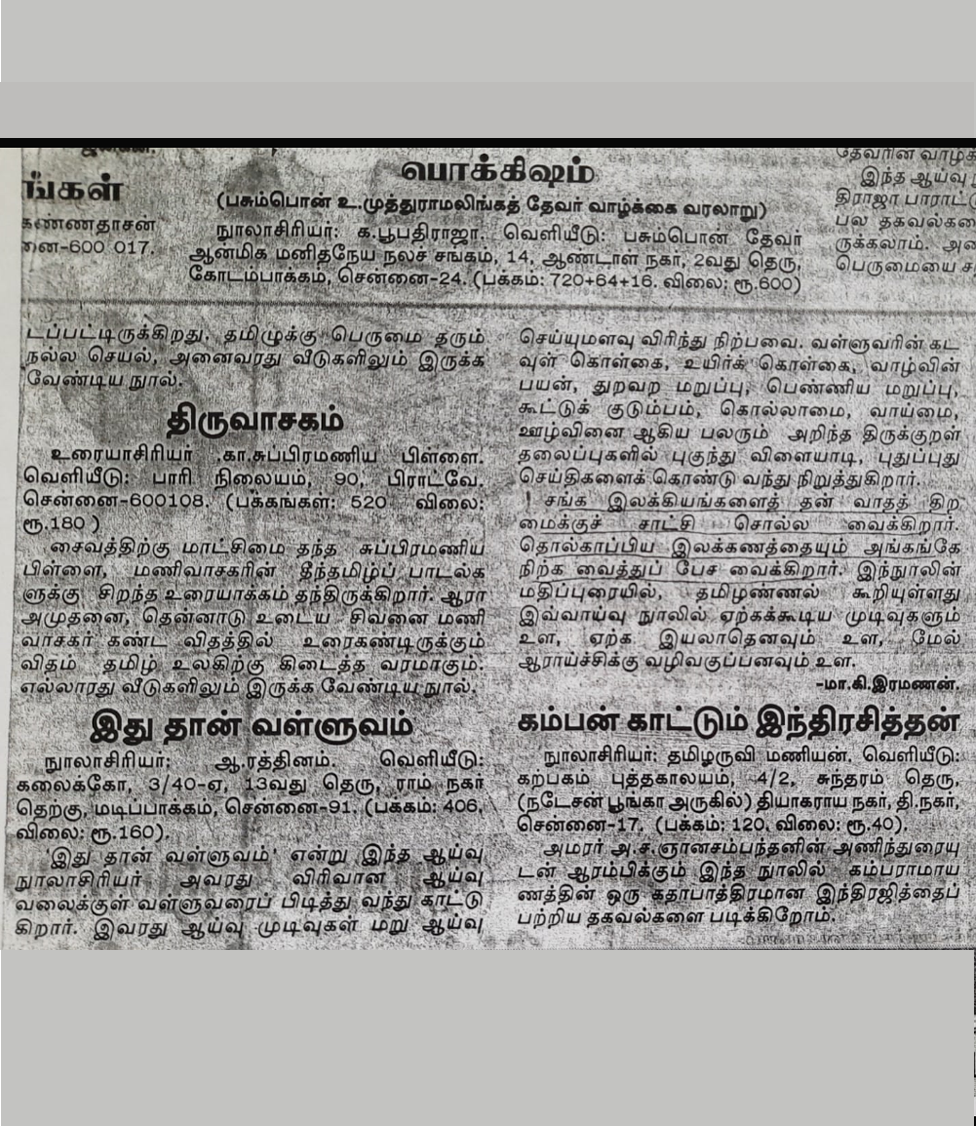 ங்கள்
கண்ணதாசன்
னை-600 017.
பொக்கிஷம்
(பசும்பொன் உ.முத்துராமலிங்கத் தேவர் வாழ்க்கை வரலாறு)
நூலாசிரியர்: க.பூபதிராஜா. வெளியீடு: பசும்பொன் தேவர்
ஆன்மிக மனிதநேய நலச் சங்கம், 14, ஆண்டாள் நகர், 2வது தெரு,
கோடம்பாக்கம், சென்னை-24. (பக்கம்: 720+64+16. விலை: ரூ.600)
தேவரின் வாழ்க
இந்த ஆய்வு
திராஜா பாராட்டு
பல தகவல்கள
ருக்கலாம்.
பெருமையை ச
டப்பட்டிருக்கிறது. தமிழுக்கு பெருமை தரும்
நல்ல செயல், அனைவரது வீடுகளிலும் இருக்க
வேண்டிய நூல்.
திருவாசகம்
உரையாசிரியர் .கா.சுப்பிரமணிய பிள்ளை.
வெளியீடு: பாரி நிலையம், 90, பிராட்வே.
சென்னை-600108. (பக்கங்கள்: 520 விலை:
ரூ.180 )
சைவத்திற்கு மாட்சிமை தந்த சுப்பிரமணிய
பிள்ளை, மணிவாசகரின் தீந்தமிழ்ப் பாடல்க
ளுக்கு சிறந்த உரையாக்கம் தந்திருக்கிறார். ஆரா
அமுதனை, தென்னாடு உடைய சிவனை மணி
வாசகர் கண்ட விதத்தில் உரைகண்டிருக்கும்
விதம் தமிழ் உலகிற்கு கிடைத்த வரமாகும்.
எல்லாரது வீடுகளிலும் இருக்க வேண்டிய நூல்.
இது தான் வள்ளுவம்
நூலாசிரியர்: ஆ.ரத்தினம். வெளியீடு:
கலைக்கோ, 3/40-ஏ, 13வது தெரு, ராம் நகர்
தெற்கு, மடிப்பாக்கம், சென்னை-91. (பக்கம்: 406.
விலை: ரூ.160).
'இது தான் வள்ளுவம்' என்று இந்த ஆய்வு
நூலாசிரியர் அவரது விரிவான ஆய்வு
வலைக்குள் வள்ளுவரைப் பிடித்து வந்து காட்டு
கிறார். இவரது ஆய்வு முடிவுகள் மறு ஆய்வு
செய்யுமளவு விரிந்து நிற்பவை. வள்ளுவரின் கட
வுள் கொள்கை, உயிர்க் கொள்கை, வாழ்வின்
பயன், துறவற மறுப்பு, பெண்ணிய மறுப்பு,
கூட்டுக் குடும்பம், கொல்லாமை, வாய்மை,
ஊழ்வினை ஆகிய பலரும் அறிந்த திருக்குறள்
தலைப்புகளில் புகுந்து விளையாடி, புதுப்புது
செய்திகளைக் கொண்டு வந்து நிறுத்துகிறார்.
சங்க இலக்கியங்களைத் தன் வாதத் திற
மைக்குச் சாட்சி சொல்ல வைக்கிறார்.
தொல்காப்பிய இலக்கணத்தையும் அங்கங்கே
நிற்க வைத்துப் பேச வைக்கிறார். இந்நூலின்
மதிப்புரையில், தமிழண்ணல் கூறியுள்ளது
இவ்வாய்வு நூலில் ஏற்கக்கூடிய முடிவுகளும்
உள, ஏற்க இயலாதெனவும் உள, மேல்
ஆராய்ச்சிக்கு வழிவகுப்பனவும் உள.
-மா.கி.இரமணன்.
கம்பன் காட்டும் இந்திரசித்தன்
நூலாசிரியர்: தமிழருவி மணியன். வெளியீடு:
கற்பகம் புத்தகாலயம், 4/2, சுந்தரம் தெரு,
(நடேசன் பூங்கா அருகில்) தியாகராய நகர், தி.நகர்,
சென்னை-17. (பக்கம்: 120. விலை: ரூ.40).
அமரர் அ.ச.ஞானசம்பந்தனின் அணிந்துரையு
டன் ஆரம்பிக்கும் இந்த நூலில் கம்பராமாய
ணத்தின் ஒரு கதாபாத்திரமான இந்திரஜித்தைப்
பற்றிய தகவல்களை படிக்கிறோம்.